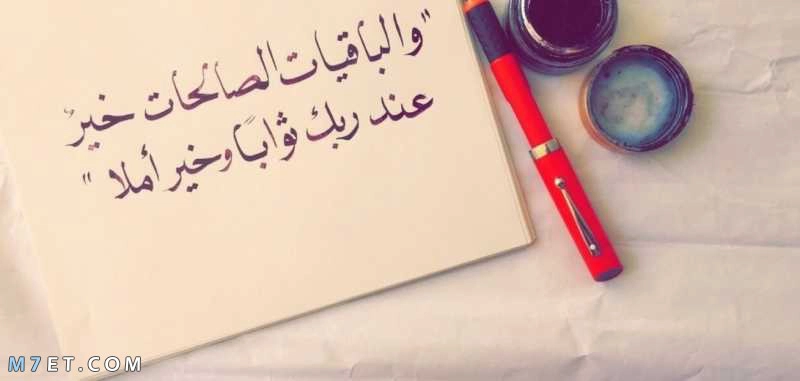 "والباقيات الصالحات خيرٌ
عند ربك ثوابًا وخير أملا "
M7ET.COM